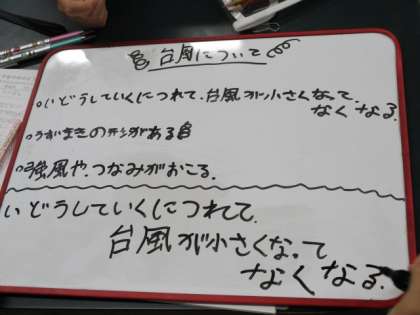 台風について
○いどうしていくにつれて、台風が小さくなって、
なくなる。
○うずまきの形がある
○強風や、つなみがおこる。
いどうしていくにつれて、
台風が小さくなって
なくなる。